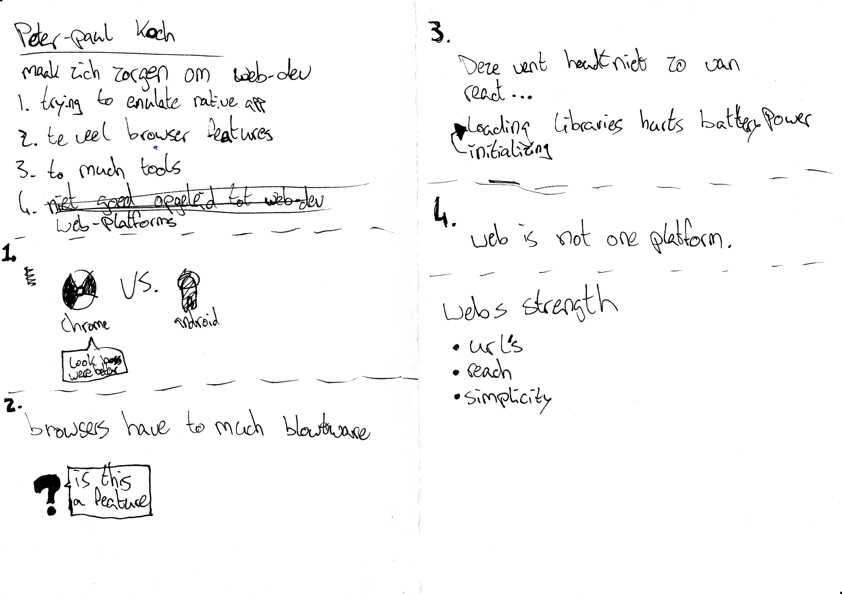 Peter-paul Koch
maak zich zorgen om web-dev
1. trying to emulate native app
2. te veel browser features
3. to much tools
4. niet goed opgeleid tot web-dev
web-platforms
1.
VS.
chrome
android
Look
were beter
2.
browsers have to much blowtware
?
is this
a feature
3.
Deze vent houdt niet zo van
react...
Loading libraries hurts battery power
initializing
4.
web is not one platform.
webs strength
• url's
• reach
• simplicity